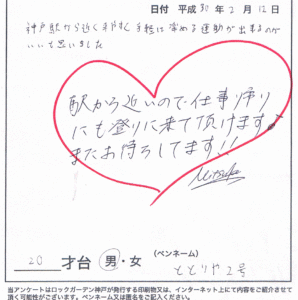 日付 平成30年2月12日
神戸駅から近く来やすく 手軽に楽める運動が出来るのが
いいと思いました
駅から近いので仕事帰り
にも登りに来て頂けます♪
またお待ちしてます!!
Mitsuda
20 才台 男・女 (ペンネーム) ととりや2号
当アンケートはロックガーデン神戸が発行する印刷物又は、インターネット上にて内容をご紹介させて
頂く可能性がございます。ペンネーム又は匿名をご記入ください。